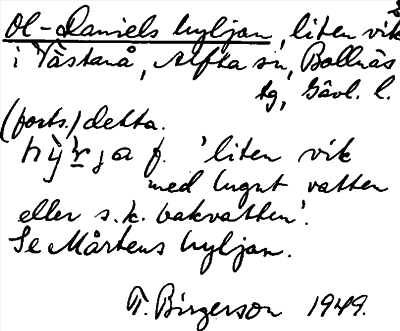 Ol-Daniels hyljan, liten vik
i Västanå, Alfta sn, Bollnäs
tg, Gävl. l.
(forts.) detta.
f. 'liten vik
med lugnt vatten
eller s.k. bakvatten'.
Se Mårtens hyljan.
T. Birgerson 1949.